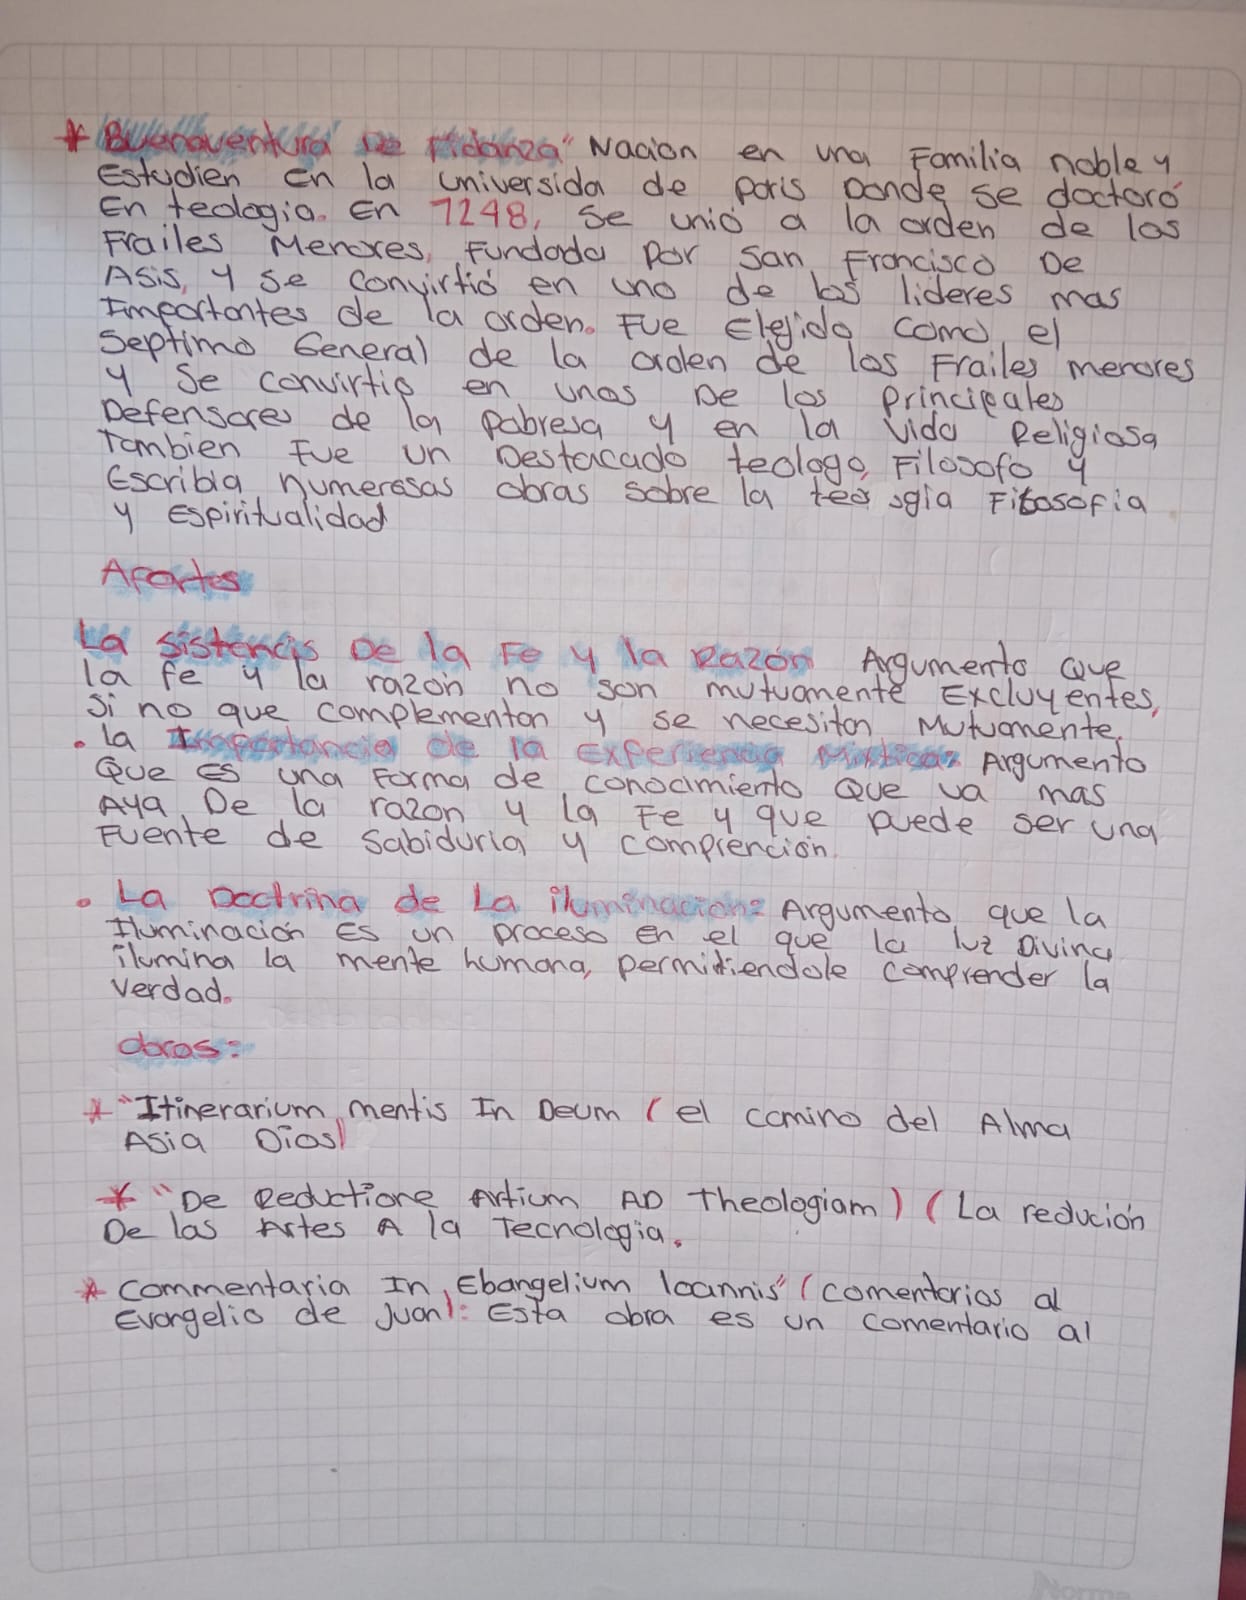 * Buenaventura De Fidanza" Nacion en una Familia noble y
Estudien En la universida de paris Donde se doctoró
En teologia. En 1248, se unió a la orden de los
Frailes Menores, Fundada Por San Francisco De
Asis, y se convirtió en uno de los lideres mas
Importantes de la orden. Fue Elejido como el
Septimo General de la orden de los Frailes menores
y Se convirtio en unos De los Principales
Defensores de la Pobresa y en la vida Religiosa
Tambien Fue un Destacado teologo, Filosofo y
Escribia numerosas obras sobre la teologia Filosofia
y Espiritualidad
Aportes
La sistencis De la Fe y la Razón Argumento Que
la fe y la razón no son mutuamente Excluyentes,
Si no que complementan y se necesitan Mutuamente.
. la Importancia de la Experiencia Mistica: Argumento
Que Es una Forma de conocimiento Que va mas
Aya De la razon y la Fe y que puede ser una
Fuente de Sabiduria y comprención.
. La Doctrina de La iluminacion: Argumento que la
Iluminación Es un proceso en el que la luz Divina
ilumina la mente humana, permitiendole comprender la
verdad.
obras:
* "Itinerarium mentis In Deum (el camino del Alma
Asia Dios)
* "De Reductione Artium AD Theologiam) (La redución
De las Artes A la Tecnologia.
* Commentaria In Ebangelium Ioannis" (comentarios al
Evangelio de Juan): Esta obra es un comentario al
Norma